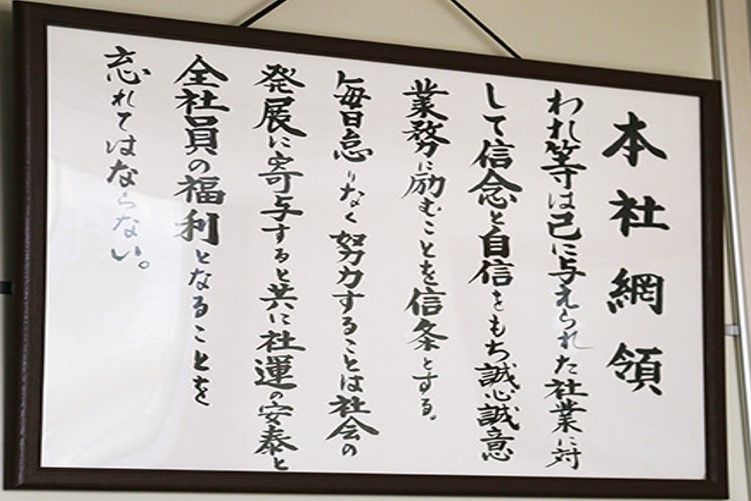 本社網領
われ等は己に与えられた社業に対
して信念と自信をもち誠心誠意
業務に励むことを信条とする。
毎日怠りなく努力することは社会の
発展に寄与すると共に社運の安泰と
全社員の福利となることを
忘れてはならない。